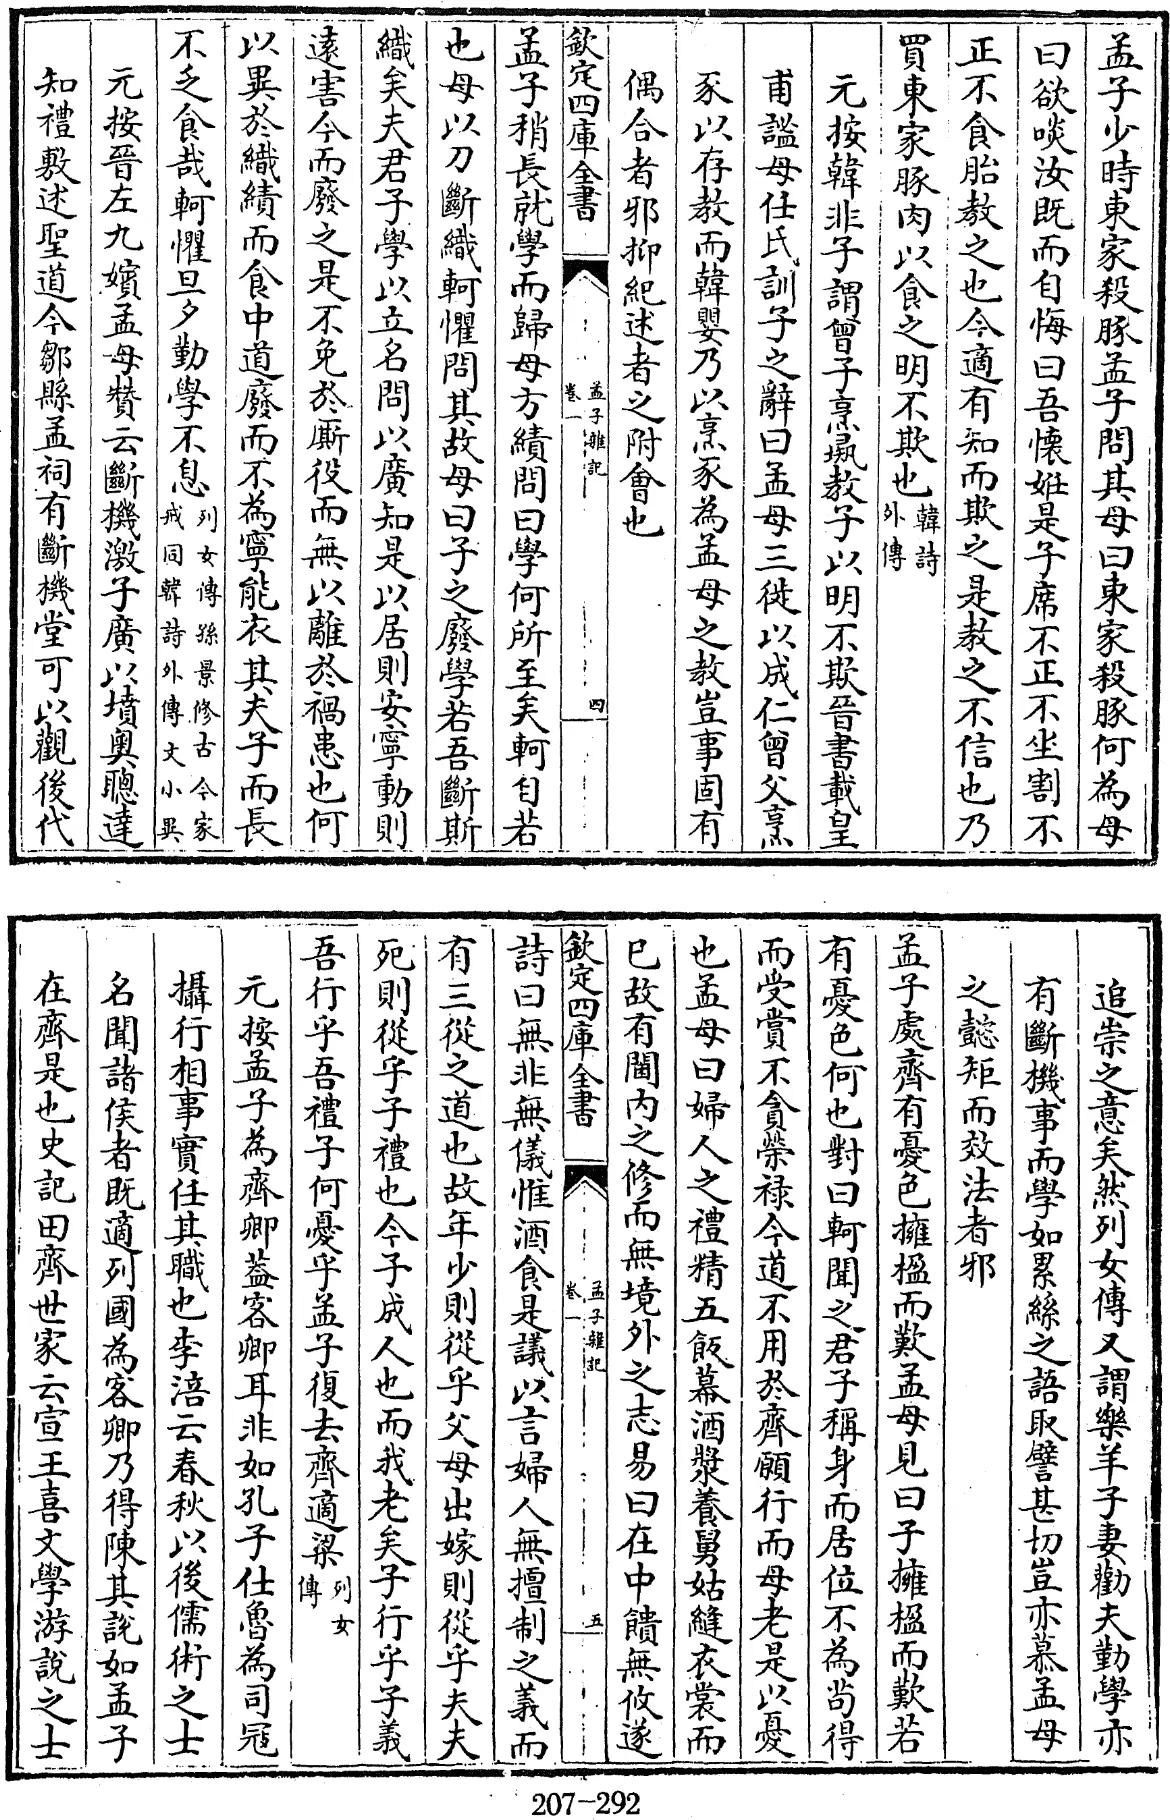 孟子少時東家殺豚孟子問其母曰東家殺豚何為母
曰欲啖汝既而自悔曰吾懷姙是子席不正不坐割不
正不食胎教之也今適有知而欺之是教之不信也乃
買東家豚肉以食之明不欺也韓詩外傳
元按韓非子謂曾子烹彘教子以明不欺晉書載皇
甫謐母任氏訓子之辭曰孟母三徙以成仁曾父烹
豕以存教而韓嬰乃以烹豕為孟母之教豈事固有
偶合者邪抑紀述者之附會也
欽定四庫全書
孟子雜記
卷一
四
孟子稍長就學而歸母方績問曰學何所至矣軻自若
也母以刀斷織軻懼問其故母曰子之廢學若吾斷斯
織矣夫君子學以立名問以廣知是以居則安寧動則
遠害今而廢之是不免於厮役而無以離於禍患也何
以異於織績而食中道廢而不為寧能衣其夫子而長
不乏食哉軻懼旦夕勤學不息列女傳孫景修古今家戒同韓詩外傳文小異
元按晉左九嬪孟母贊云斷機激子廣以墳奧聰達
知禮敷述聖道今鄒縣孟祠有斷機堂可以觀後代
追崇之意矣然列女傳又謂樂羊子妻勸夫勤學亦
有斷機事而學如累絲之語取譬甚切豈亦慕孟母
之懿矩而效法者邪
孟子處齊有憂色擁楹而歎孟母見曰子擁楹而歎若
有憂色何也對曰軻聞之君子稱身而居位不為茍得
而受賞不貪榮禄今道不用於齊願行而母老是以憂
也孟母曰婦人之禮精五飯幕酒漿養舅姑縫衣裳而
已故有閫内之修而無境外之志易曰在中饋無攸遂
欽定四庫全書
孟子雜記
卷一
五
詩曰無非無儀惟酒食是議以言婦人無擅制之義而
有三從之道也故年少則從乎父母出嫁則從乎夫夫
死則從乎子禮也今子成人也而我老矣子行乎子義
吾行乎吾禮子何憂乎孟子復去齊適梁列女傳
元按孟子為齊卿葢客卿耳非如孔子仕魯為司冦
攝行相事實任其職也李涪云春秋以後儒術之士
名聞諸侯者既適列國為客卿乃得陳其說如孟子
在齊是也史記田齊世家云宣王喜文學游說之士
207-292